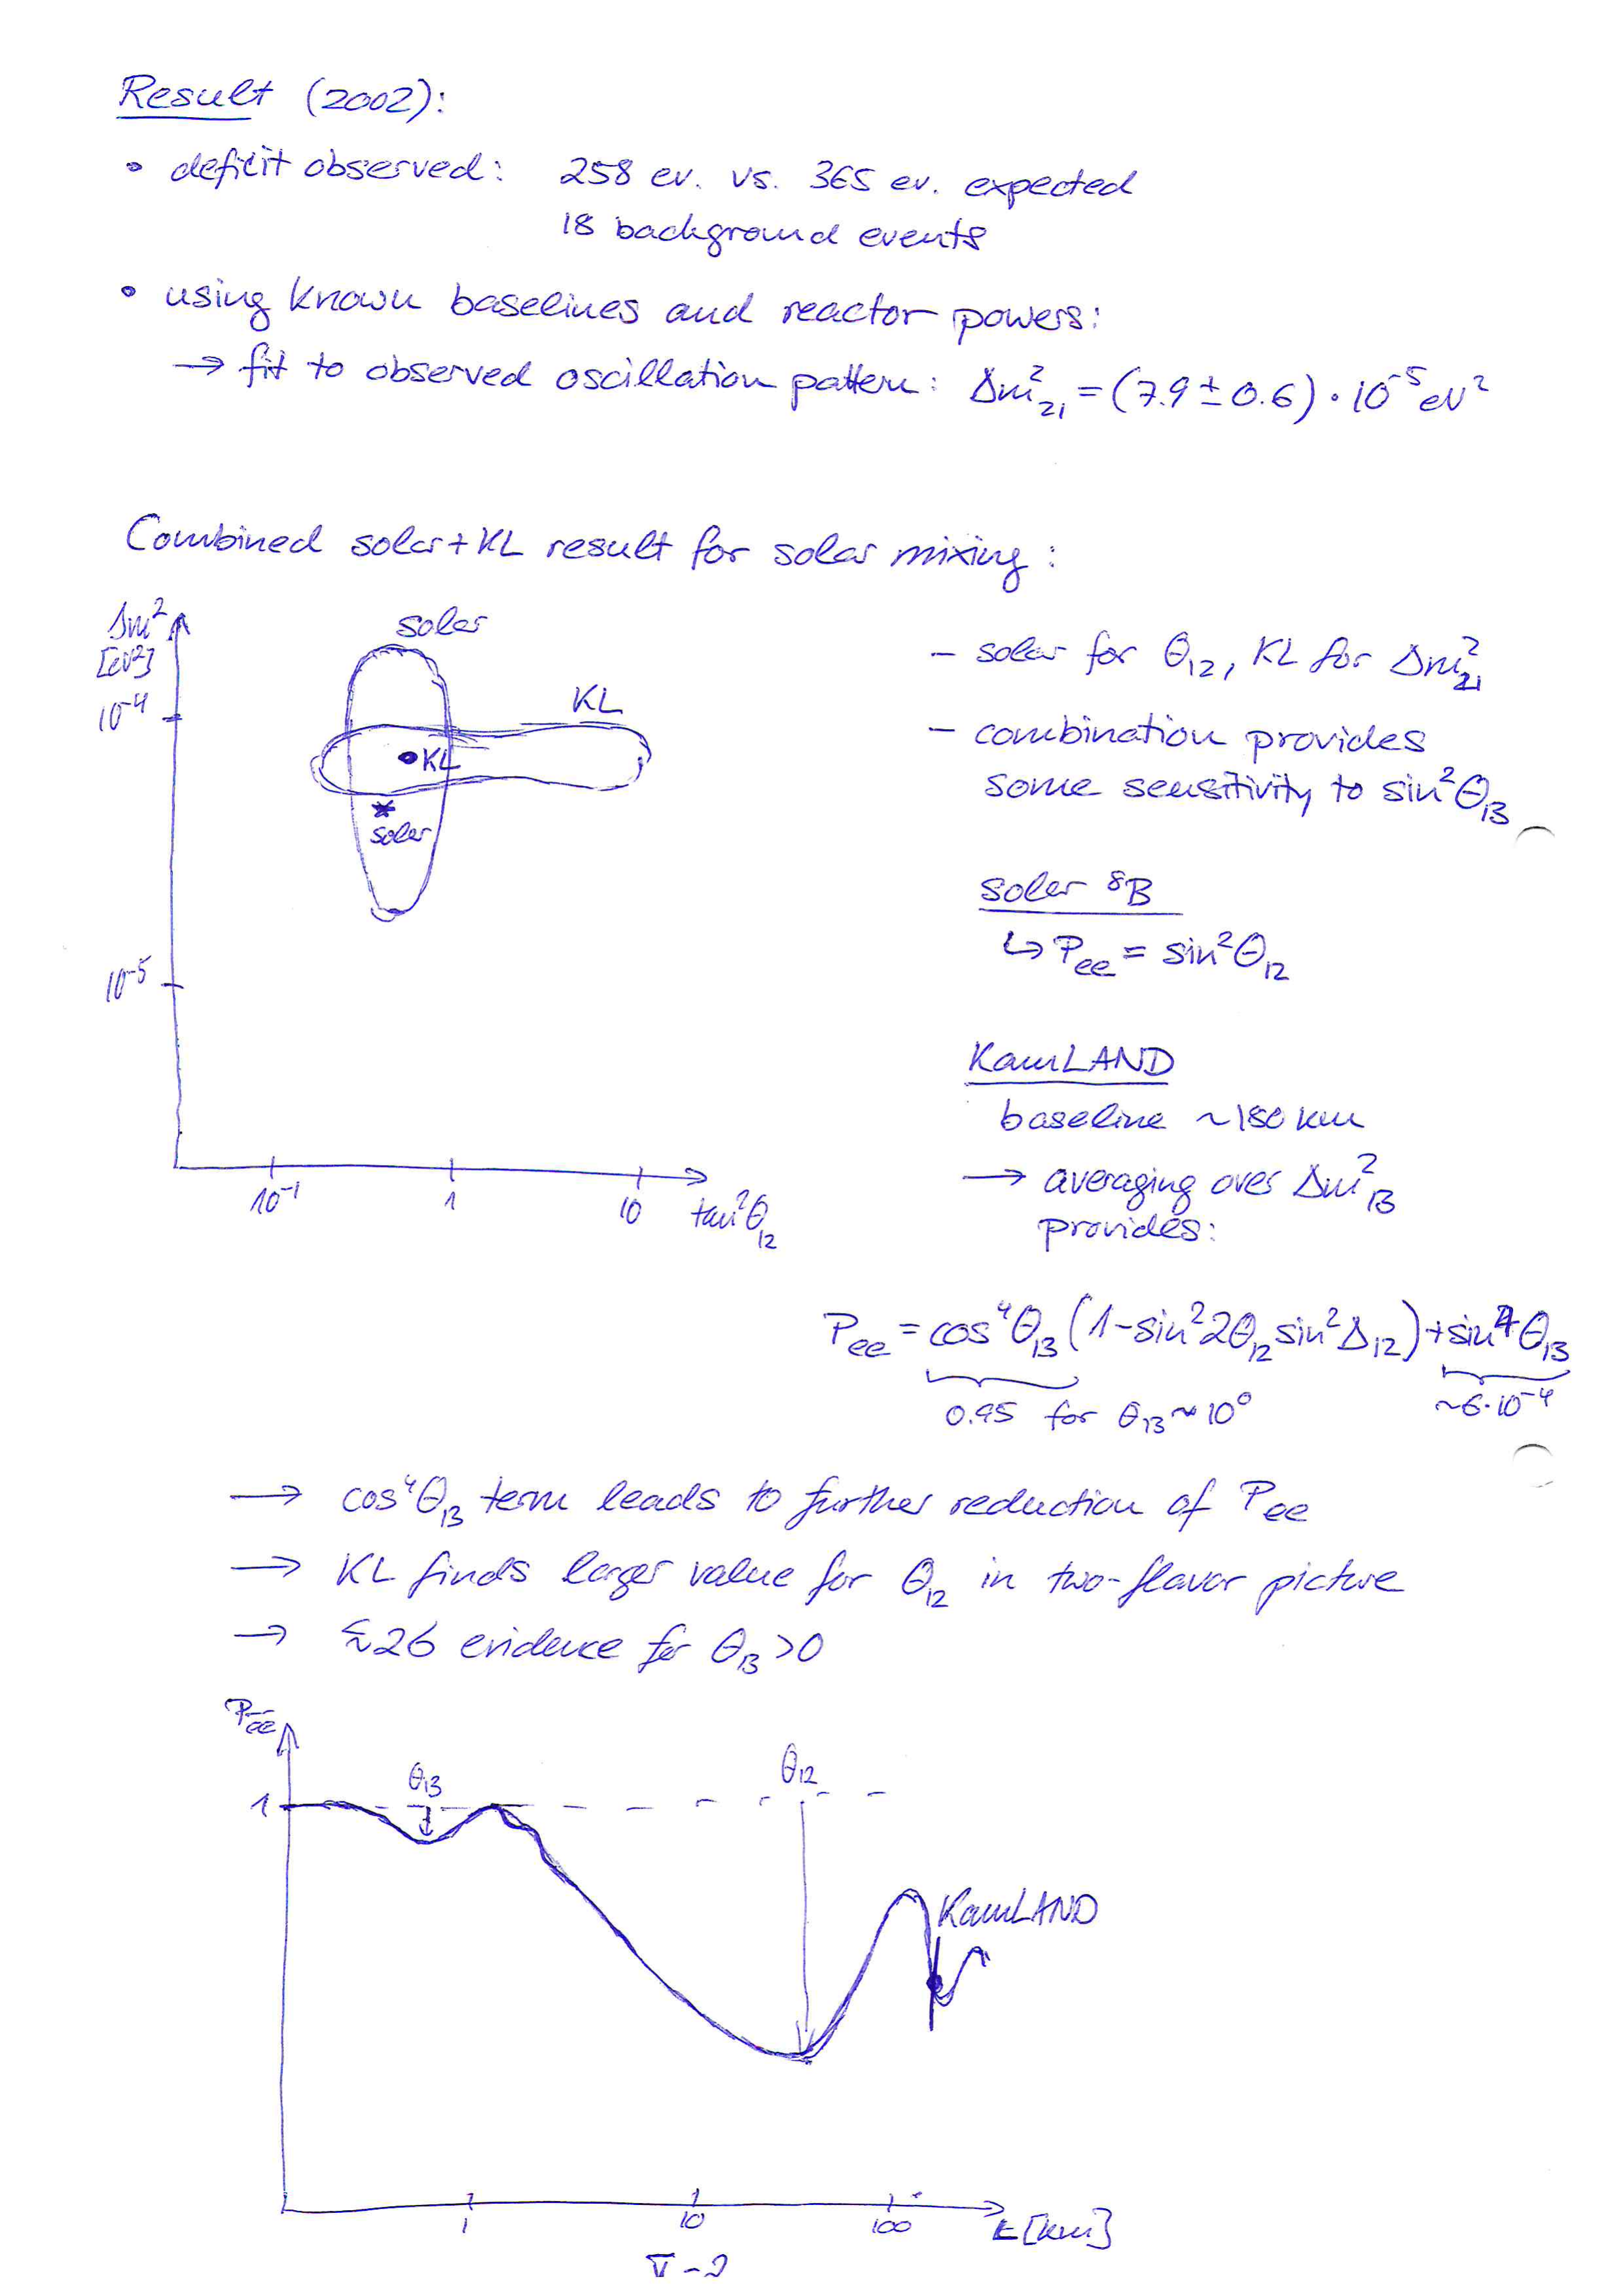 Result (2002):
• deficit observed: 258 ev. vs. 365 ev. expected
18 background events
• using known baselines and reactor powers:
→ fit to observed oscillation pattern: Δm²₂₁ = (7.9 ± 0.6) · 10⁻⁵ eV²
Combined solar + KL result for solar mixing:
Δm²
[eV²]
10⁻⁴
10⁻⁵
solar
KL
KL
solar
10⁻¹ 1 10 tan²θ₁₂
– solar for θ₁₂, KL for Δm²₂₁
– combination provides
some sensitivity to sin²θ₁₃
solar ⁸B
↳ Pee = sin²θ₁₂
KamLAND
baseline ~180 km
→ averaging over Δm²₁₃
provides:
Pee = cos⁴θ₁₃ (1 – sin²2θ₁₂ sin²Δ₁₂) + sin⁴θ₁₃
0.95 for θ₁₃ ≈ 10° ~6·10⁻⁴
→ cos⁴θ₁₃ term leads to further reduction of Pee
→ KL finds larger value for θ₁₂ in two-flavor picture
→ ≲2σ evidence for θ₁₃ > 0
Pee
1
θ₁₃
θ₁₂
KamLAND
1 10 100 L [km]